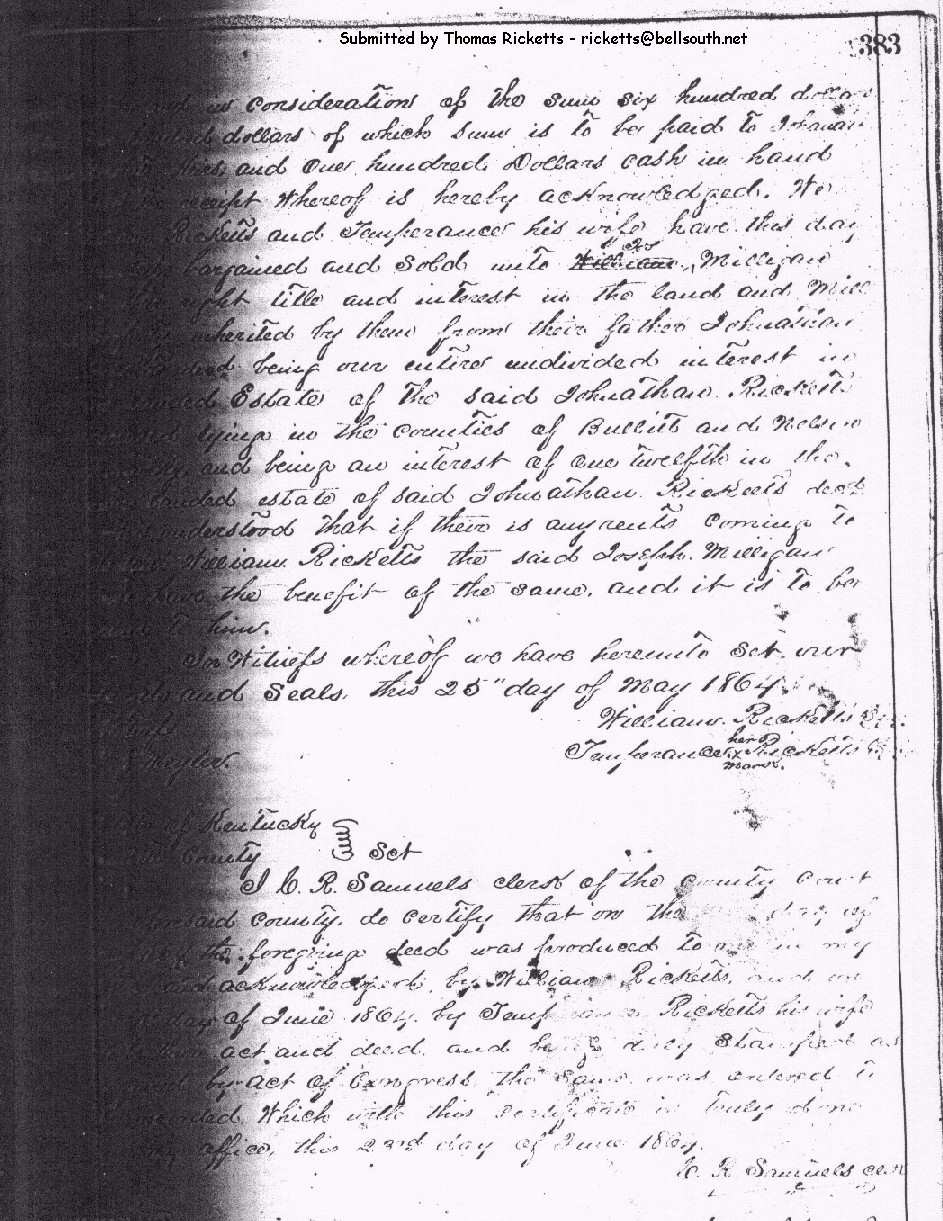 Submitted by Thomas Ricketts - ricketts@bellsouth.net
383
in considerations of the sum six hundred dollars
dollars of which sum is to be paid to
and One hundred Dollars cash in hand
receipt Whereof is hereby acknowledged. We
Ricketts and Temperance his wife have this day
bargained and Sold unto William Jos Milligan
right title and interest in the land and Mill
inherited by them from their father Johnathan
being our entire undivided interest in
Estate of the said Johnathan Ricketts
lying in the counties of Bullitt and Nelson
and being an interest of one twelfth in the
landed estate of said Johnathan Ricketts decd
understood that if there is any rents coming to
William Ricketts the said Joseph Milligan
have the benefit of the same. and it is to be
to him.
In Witness whereof we have hereunto Set our
and Seals, this 25" day of May 1864
William Ricketts
Temperance her x mark Ricketts
of Kentucky
County Sct
I C. R. Samuels clerk of the county Court
said county do certify that on the day of
the foregoing deed was produced to me in my
and acknowledged by William Ricketts, and on
day of June 1864 by Temperance Ricketts his wife
act and deed and being duly Stamped as
by act of Congress the same was ordered to
recorded Which with this certificate is truly done
office, this 23rd day of June 1864.
C. R. Samuels clerk